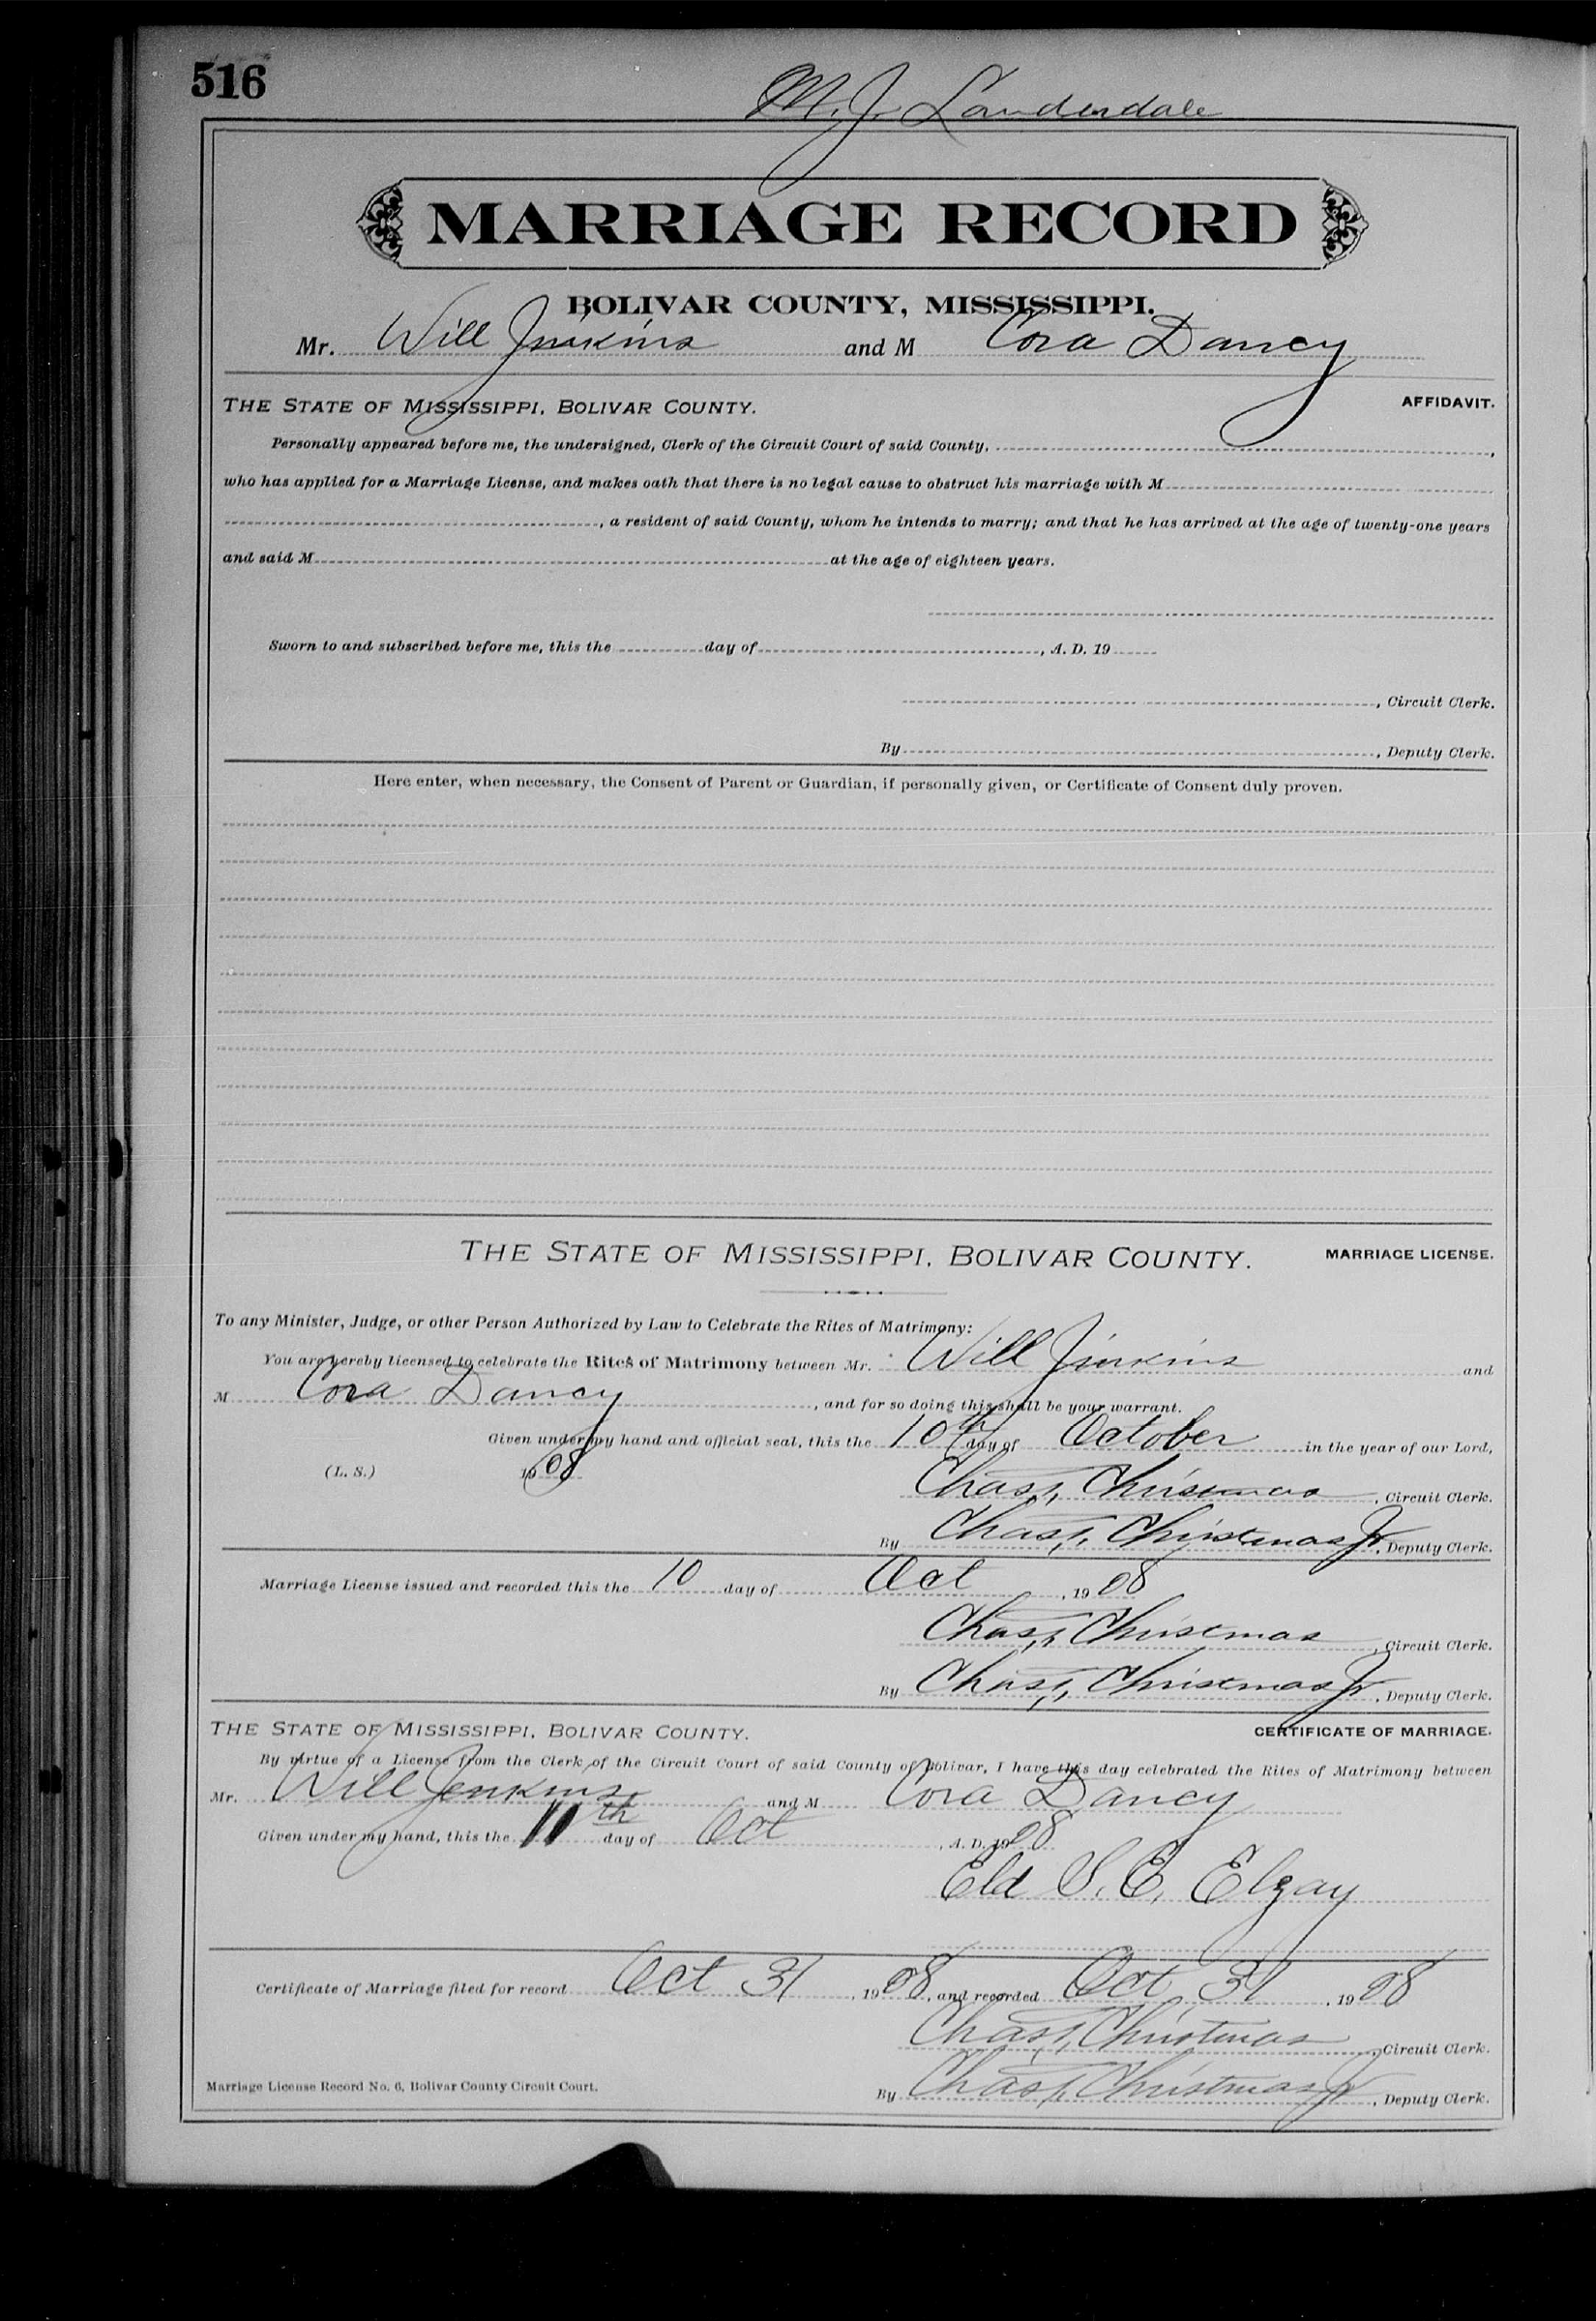 516
M. J. Lauderdale
MARRIAGE RECORD
BOLIVAR COUNTY, MISSISSIPPI.
Mr. Will Jinkins and M Cora Dancy
THE STATE OF MISSISSIPPI, BOLIVAR COUNTY. AFFIDAVIT.
Personally appeared before me, the undersigned, Clerk of the Circuit Court of said County,
who has applied for a Marriage License, and makes oath that there is no legal cause to obstruct his marriage with M
, a resident of said County, whom he intends to marry; and that he has arrived at the age of twenty-one years
and said M at the age of eighteen years.
Sworn to and subscribed before me, this the day of , A. D. 19
, Circuit Clerk.
By , Deputy Clerk.
Here enter, when necessary, the Consent of Parent or Guardian, if personally given, or Certificate of Consent duly proven.
THE STATE OF MISSISSIPPI, BOLIVAR COUNTY. MARRIAGE LICENSE.
To any Minister, Judge, or other Person Authorized by Law to Celebrate the Rites of Matrimony:
You are hereby licensed to celebrate the Rites of Matrimony between Mr. Will Jinkins and
M Cora Dancy , and for so doing this shall be your warrant.
Given under my hand and official seal, this the 10th day of October in the year of our Lord,
(L. S.) 1908
Chas, Christmas , Circuit Clerk.
By Chas, Christmas Jr , Deputy Clerk.
Marriage License issued and recorded this the 10 day of Oct , 1908
Chas, Christmas , Circuit Clerk.
By Chas, Christmas Jr , Deputy Clerk.
THE STATE OF MISSISSIPPI, BOLIVAR COUNTY. CERTIFICATE OF MARRIAGE.
By virtue of a License from the Clerk of the Circuit Court of said County of Bolivar, I have this day celebrated the Rites of Matrimony between
Mr. Will Jenkins and M Cora Dancy
Given under my hand, this the 11th day of Oct , A. D. 1908
Eld S. E. Elzay
Certificate of Marriage filed for record Oct 31 , 1908, and recorded Oct 31 , 1908
Chas, Christmas , Circuit Clerk.
Marriage License Record No. 6, Bolivar County Circuit Court. By Chas, Christmas Jr , Deputy Clerk.